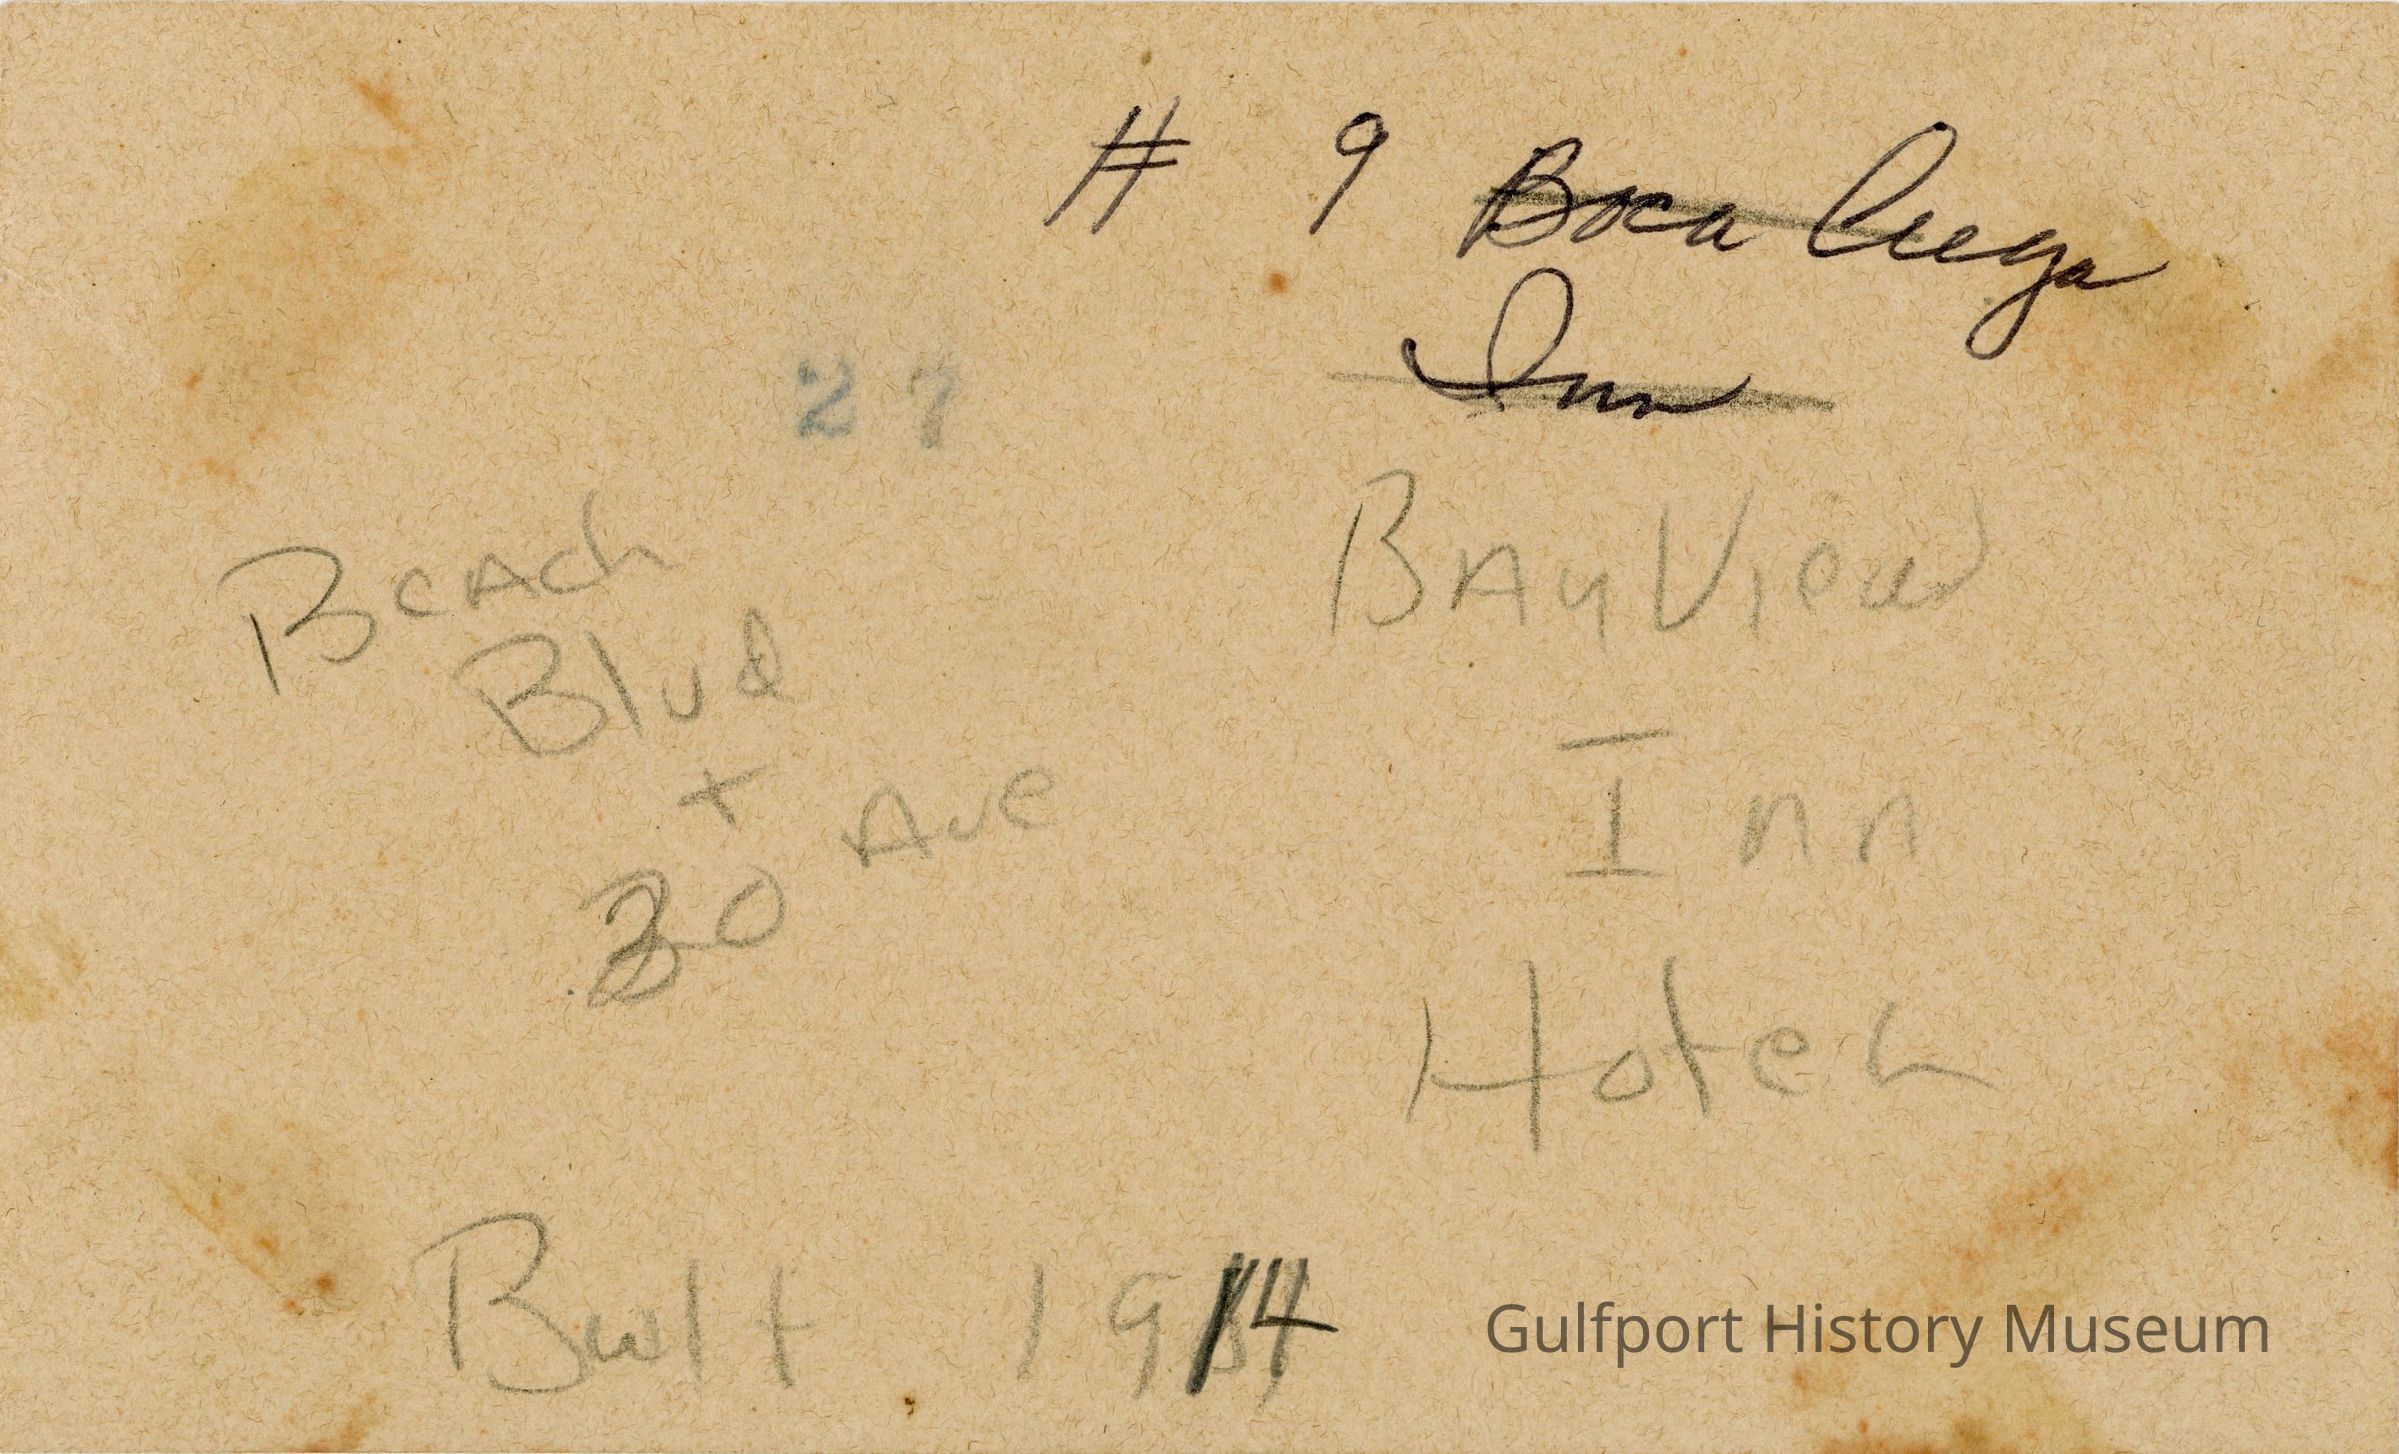 # 9 Boca Ciega
Inn
27
Beach
Blvd
+
30 Ave
BayView
Inn
Hotel
Built 1914
Gulfport History Museum